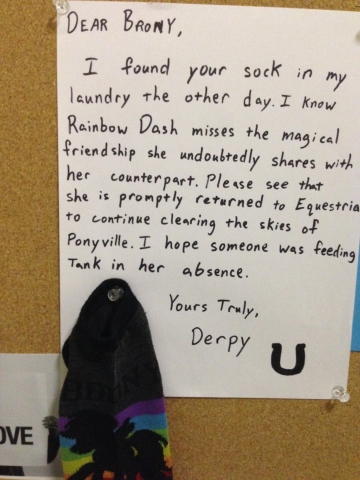 Dear Brony,
I found your sock in my
laundry the other day. I know
Rainbow Dash misses the magical
friendship she undoubtedly shares with
her counterpart. Please see that
she is promptly returned to Equestria
to continue clearing the skies of
Ponyville. I hope someone was feeding
Tank in her absence.
Yours Truly,
Derpy
BRONY
OVE